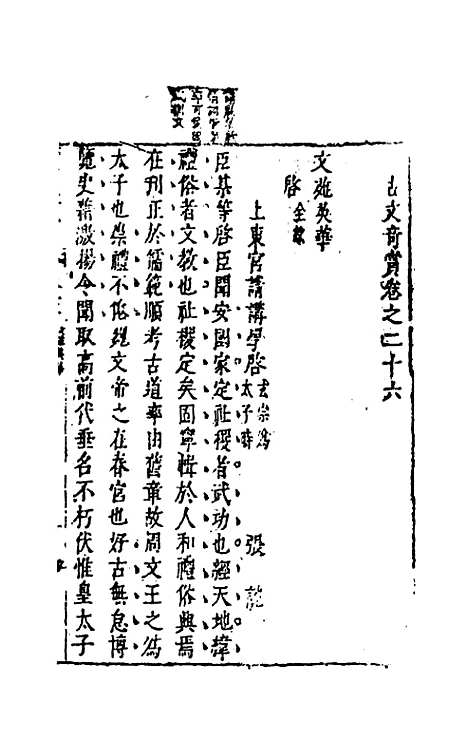 古文奇賞卷之二十六
文苑英華
啓 全錄
上東宮請講學啓 玄宗為太子時 張說
臣某等啓臣聞安國家定社稷者武功也經天地緯
禮俗者文教也社稷定矣固寧輯於人和禮俗興焉
在刊正於儒範順考古道率由舊章故周文王之為
太子也崇禮不倦魏文帝之在春宮也好古無怠博
覽史籍激揚令聞取高前代垂名不朽伏惟皇太子